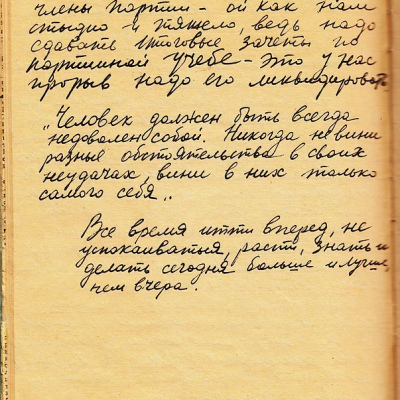 члены партии - ой как нам
стыдно и тяжело, ведь надо
сдавать итоговые зачеты по
партийной учебе - это у нас
прорыв надо его ликвидировать
"Человек должен быть всегда
недоволен собой. Никогда не вини
разные обстоятельства в своих
неудачах, вини в них только
самого себя".
Все время итти вперед, не
успокаиваться, расти, знать и
делать сегодня больше и лучше,
чем вчера.